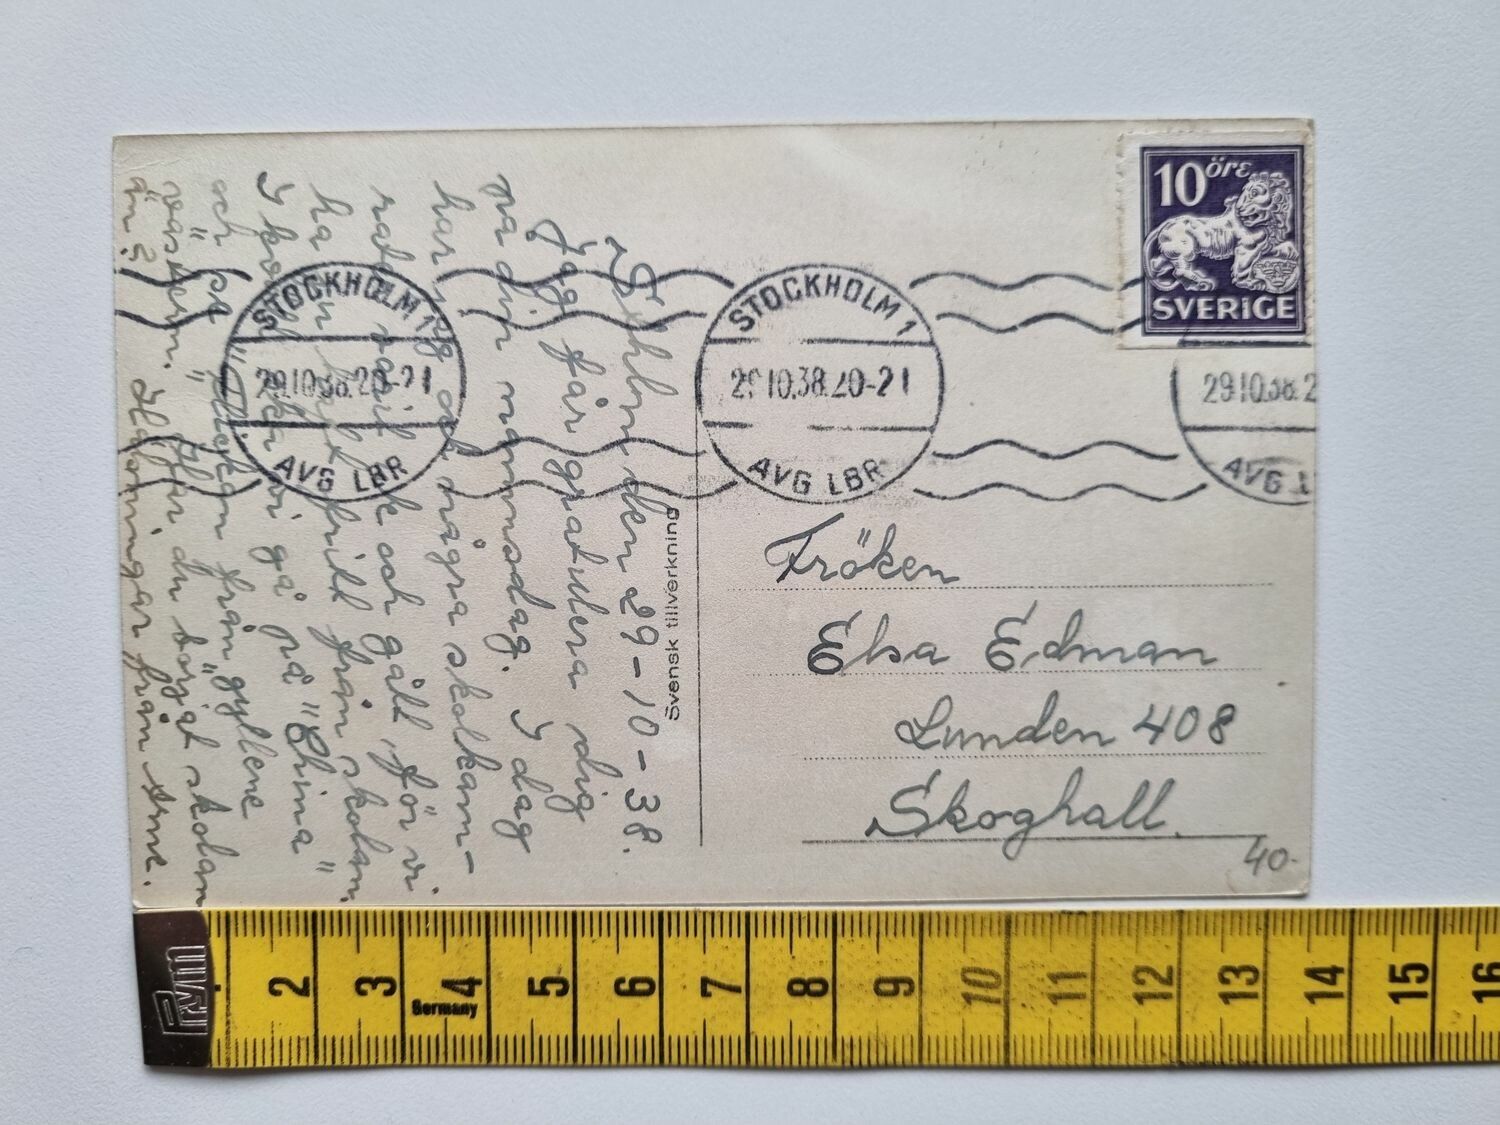 Sthlm den 29-10-38.
Jag får gratulera dig
på din mamnsdag. I dag
har jag och några skolkam-
rater varit och gått för vi
ha haft fritt från skolan
I kväll ska vi gå på "China"
och se "Flickan från gyllene
västern". Har du börjat skolan
än? Hälsningar från Arne.
Svensk tillverkning
10 öre
SVERIGE
STOCKHOLM 1
29.10.38.20-21
AVG LBR
STOCKHOLM 1
29.10.38.20-21
AVG LBR
29.10.38.2
AVG L
Fröken
Elsa Edman
Lunden 408
Skoghall.
40-
Prym
2 3 4 5 6 7 8 9 10 11 12 13 14 15 16
Germany